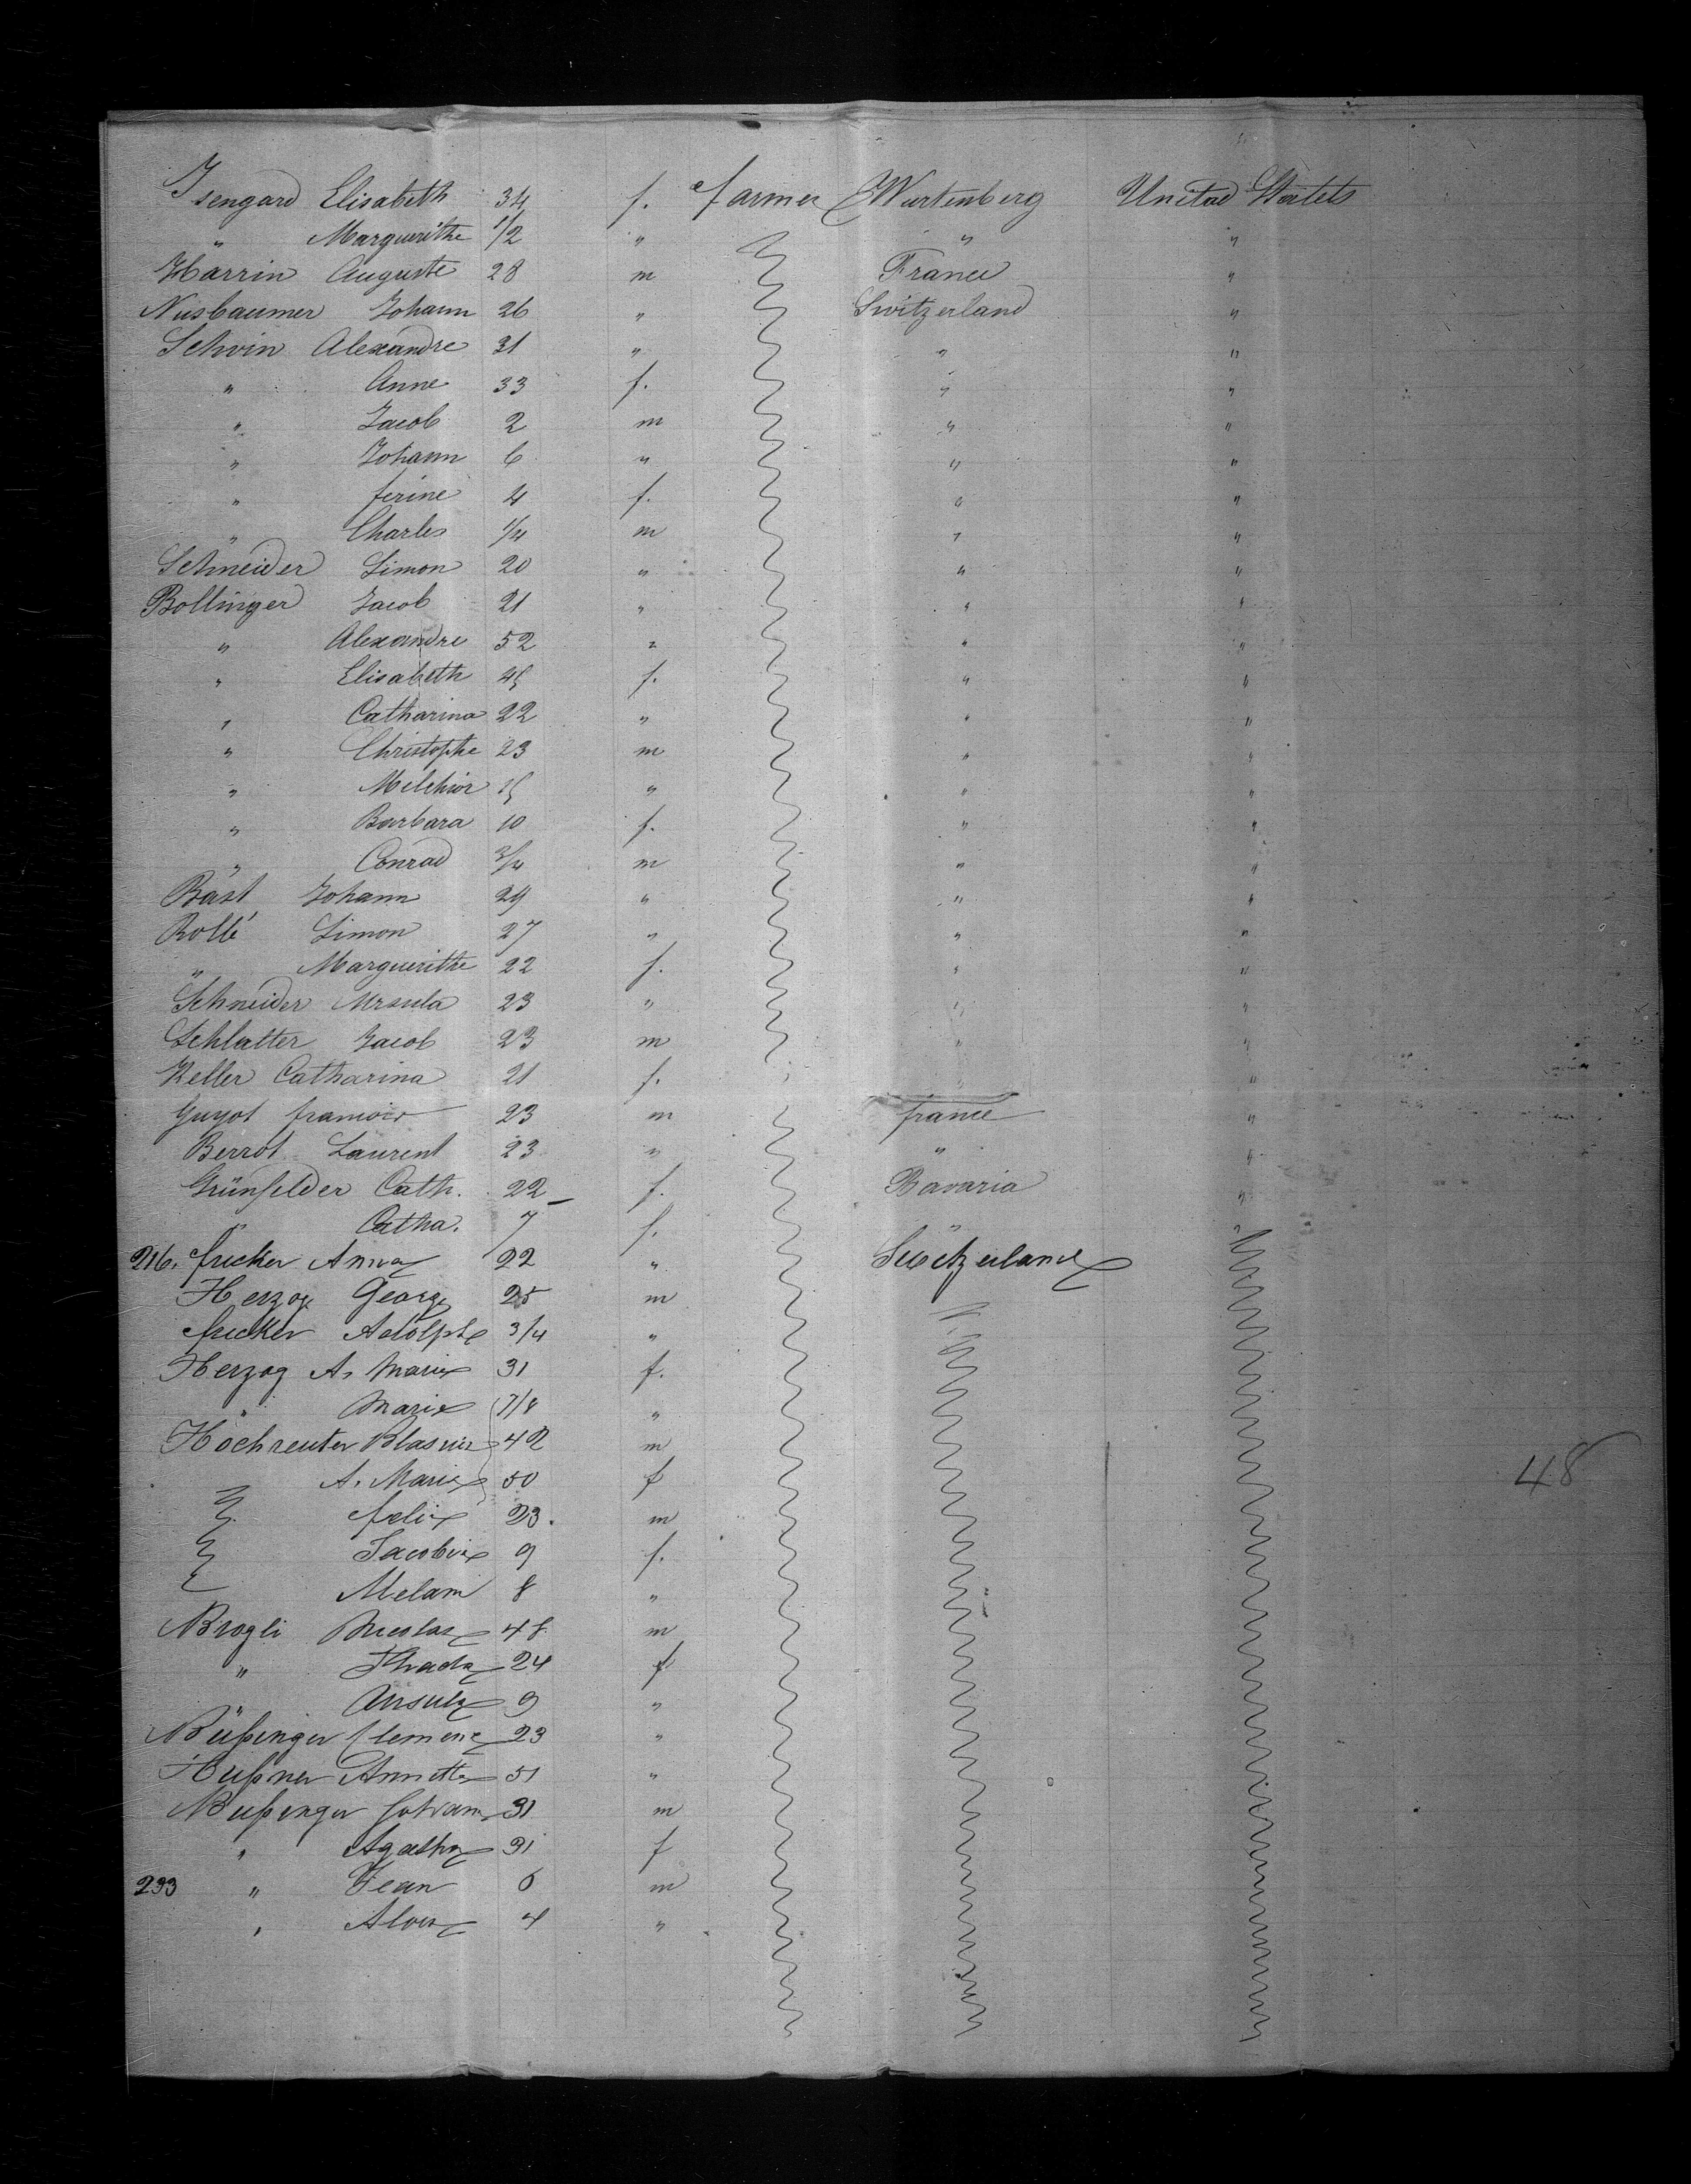 Isengard Elisabeth 34 f. farmer Wurtenberg United Statets
" Marguerithe 1/2 " " "
Harrin Auguste 28 m France "
Nusbaumer Johann 26 " Switzerland "
Schvin Alexandre 31 " " "
" Anne 33 f. " "
" Jacob 2 m " "
" Johann 6 " " "
" ferine 4 f. " "
" Charles 1/4 m " "
Schneider Simon 20 " " "
Bollinger Jacob 21 " " "
" Alexandre 52 " " "
" Elisabeth 45 f. " "
" Catharina 22 " " "
" Christophe 23 m " "
" Melchior 15 " " "
" Barbara 10 f. " "
" Conrad 3/4 m " "
Bäst Johann 29 " " "
Rollé Simon 27 " " "
" Marguerithe 22 f. " "
Schneider Ursula 23 " " "
Schlatter Jacob 23 m " "
Keller Catharina 21 f. " "
Guyot francois 23 m france "
Berrot Laurent 23 " " "
Grünfelder Cath. 22 f. Bavaria "
" Catha. 7 f. " "
216. fricker Anna 22 " Switzerland
Herzog George 25 m
fricker Adolphe 3/4 "
Herzog A. Marie 31 f.
" Marie 7/8 "
Hochreuter Blasius 42 m
A. Marie 50 f
felix 23. m
Jacobine 9 f.
Melani 8 "
Brogli Nicolas 48 m
" Thada 24 f
" Ursula 9 "
Büßinger Clemenz 23 "
Hußner Annette 51 "
Bußinger Johann 31 m
" Agatha 31 f
233 " Jean 6 m
" Alois 4 "
48